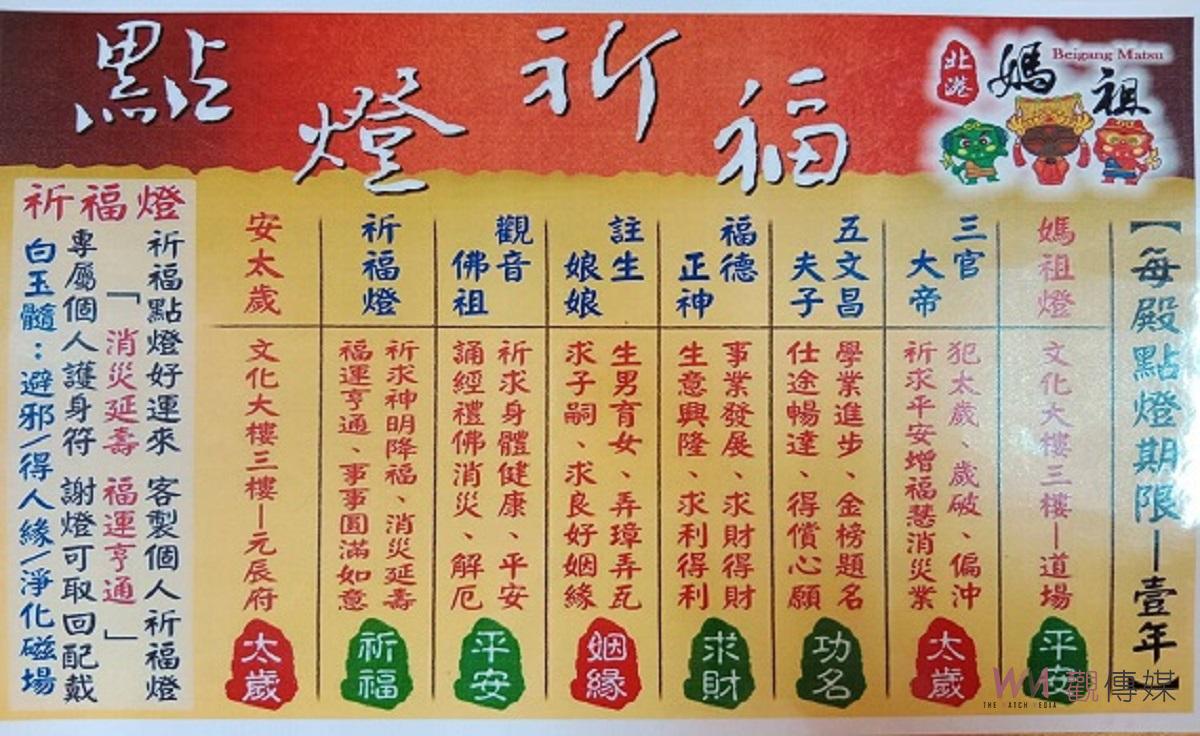 點燈祈福
北港
媽祖
Beigang Matsu
【每殿點燈期限—壹年】
媽祖燈
文化大樓三樓—道場
平安
三官
大帝
犯太歲、歲破、偏沖
祈求平安增福慧消災業
太歲
五文昌
夫子
學業進步、金榜題名
仕途暢達、得償心願
功名
福德
正神
事業發展、求財得財
生意興隆、求利得利
求財
註生
娘娘
生男育女、弄璋弄瓦
求子嗣、求良好姻緣
姻緣
觀音
佛祖
祈求身體健康、平安
誦經禮佛消災、解厄
平安
祈福燈
祈求神明降福、消災延壽
福運亨通、事事圓滿如意
祈福
安太歲
文化大樓三樓—元辰府
太歲
祈福燈
祈福點燈好運來 客製個人祈福燈
「消災延壽 福運亨通」
專屬個人護身符 謝燈可取回配戴
白玉髓：避邪/得人緣/淨化磁場
WM觀傳媒
THE WATCH MEDIA